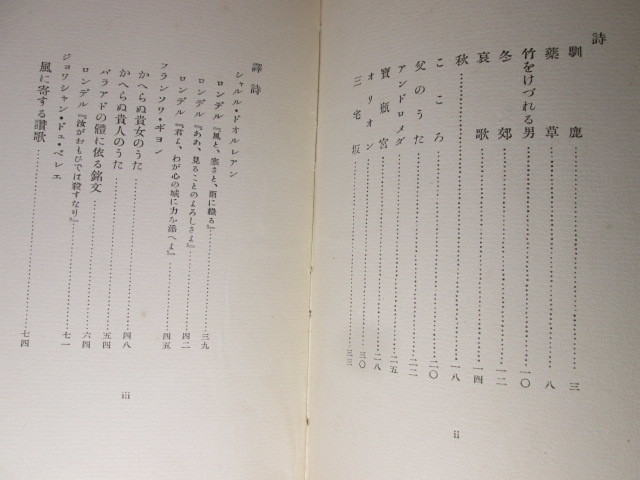 詩
馴鹿 三
藥草 八
竹をけづれる男 一〇
冬郊 一二
哀歌 一四
秋 一八
こころ 二〇
父のうた 二二
アンドロメダ 二五
寶瓶宮 二八
オリオン 三〇
三宅坂 三三
ii
譯詩
シャルル・ドオルレアン
ロンデル『風と、寒さと、雨に織る』 三九
ロンデル『ああ、見ることのよろしさよ』 四二
ロンデル『君よ、わが心の城に力を添へよ』 四五
フランソワ・ギヨン
かへらぬ貴女のうた 四八
かへらぬ貴人のうた 五四
バラアドの體に依る銘文 六四
ロンデル『汝がおもひでは殺すなり』 七一
ジョワシャン・ドュ・ベレエ
風に寄する讃歌 七四
iii